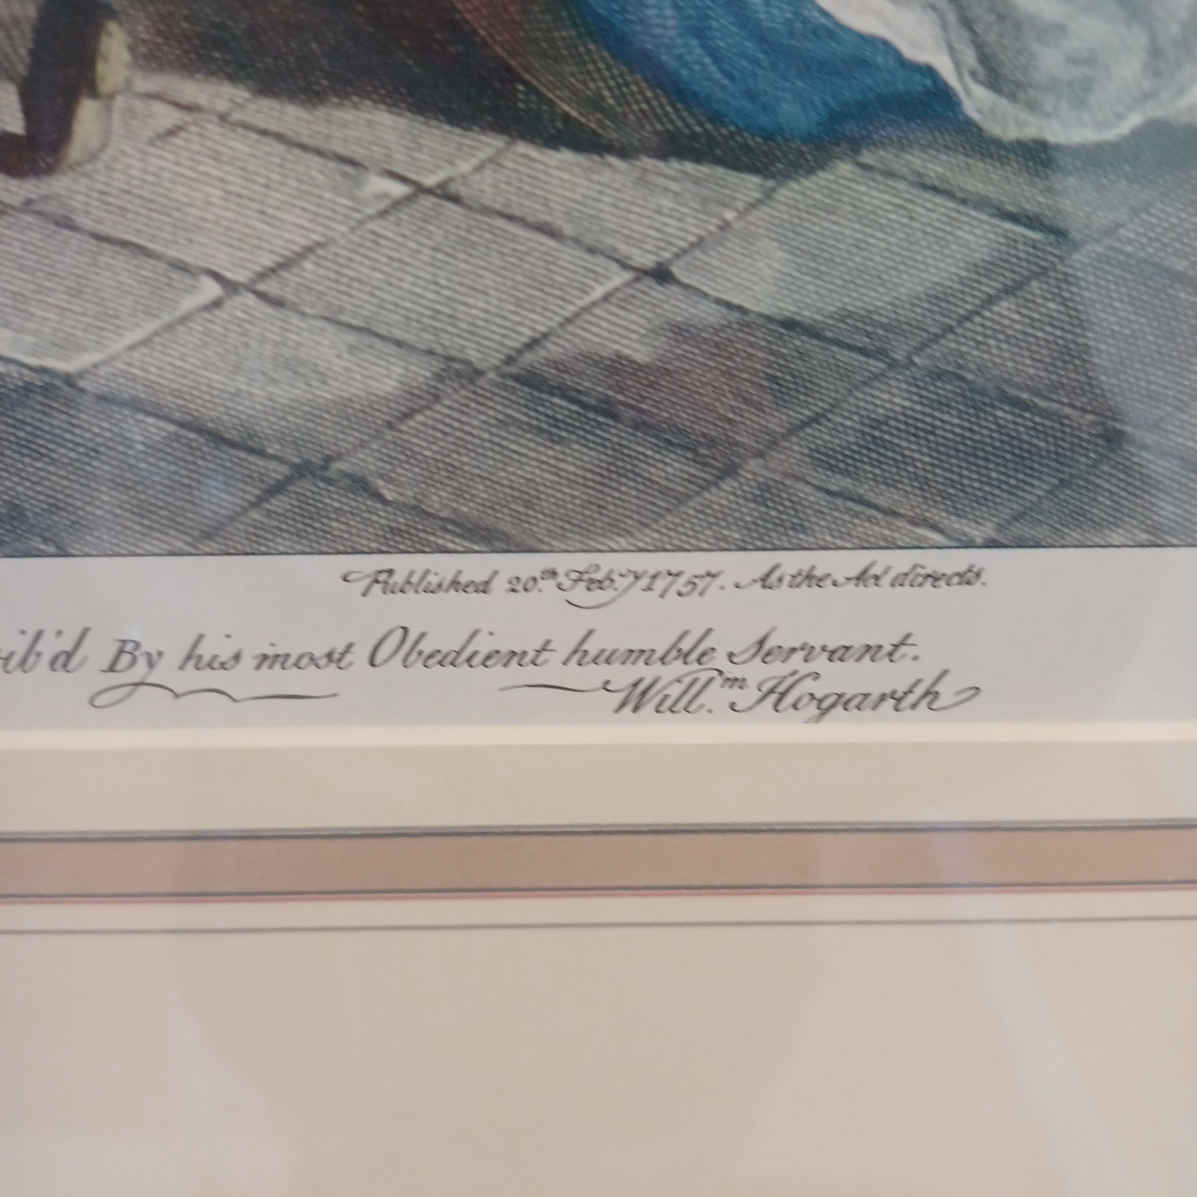 Published 20.th Feb.ry 1757. As the Act directs.
rib'd By his most Obedient humble Servant.
Will.m Hogarth